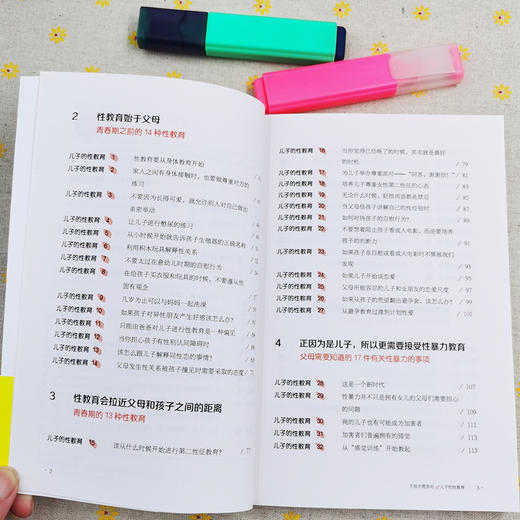 2 性教育始于父母
青春期之前的14种性教育
儿子的性教育 1 性教育要从身体教育开始
儿子的性教育 2 家人之间有身体接触时，也要做尊重对方的
练习
儿子的性教育 3 不要因为长得可爱，就允许别人对自己做出
亲密举动
儿子的性教育 4 让儿子进行憋尿的练习
儿子的性教育 5 从小时候开始就告诉孩子生殖器的正确名称
儿子的性教育 6 利用积木玩具解释性关系
儿子的性教育 7 不要太过在意幼儿时期的自慰行为
儿子的性教育 8 在给孩子买衣服和玩具的时候，不要遵从性
别固有观念
儿子的性教育 9 几岁为止可以与妈妈一起洗澡
儿子的性教育 10 如果孩子对异性朋友产生好感该怎么办？
儿子的性教育 11 只能由爸爸对儿子进行性教育是一种偏见
儿子的性教育 12 当你担心孩子有性别认同障碍时
儿子的性教育 13 该怎么跟儿子解释同性恋的事情？
儿子的性教育 14 父母发生性关系被孩子撞见时需要采取的态度
3 性教育会拉近父母和孩子之间的距离
青春期的13种性教育
儿子的性教育 15 该从什么时候开始进行第二性征教育？ / 77
2
儿子的性教育 16 当你觉得已经晚了的时候，其实就是最好
的时机 / 79
儿子的性教育 17 为儿子举办尊重派对——“问答，谢谢你！” / 81
儿子的性教育 18 培养儿子尊重女性第二性征的心态 / 83
儿子的性教育 19 无论什么时候，贬损用语都是禁忌 / 85
儿子的性教育 20 当父母给孩子讲解自己的性经验时 / 87
儿子的性教育 21 如何对待孩子的自慰行为？
儿子的性教育 22 不要想着阻止孩子看成人电影，而是要培养
孩子的判断力
儿子的性教育 23 如果孩子自慰或者看成人电影时不慎被我们
发现
儿子的性教育 24 如果儿子开始谈恋爱
儿子的性教育 25 父母所能容忍的儿子和女朋友的恋爱尺度
儿子的性教育 26 如果从孩子的兜里翻出避孕套，该怎么办？
儿子的性教育 27 从避孕教育过渡到计划性爱
4 正因为是儿子，所以更需要接受性暴力教育
父母需要知道的17件有关性暴力的事项
儿子的性教育 28 这是一个新时代 / 107
儿子的性教育 29 性暴力并不只是拥有女儿的父母们需要担心
的问题 / 109
儿子的性教育 30 我的儿子也有可能成为加害者 / 111
儿子的性教育 31 加害者们普遍拥有的错觉 / 113
儿子的性教育 32 从“感觉训练”开始教起 / 115
儿子的性教育
3